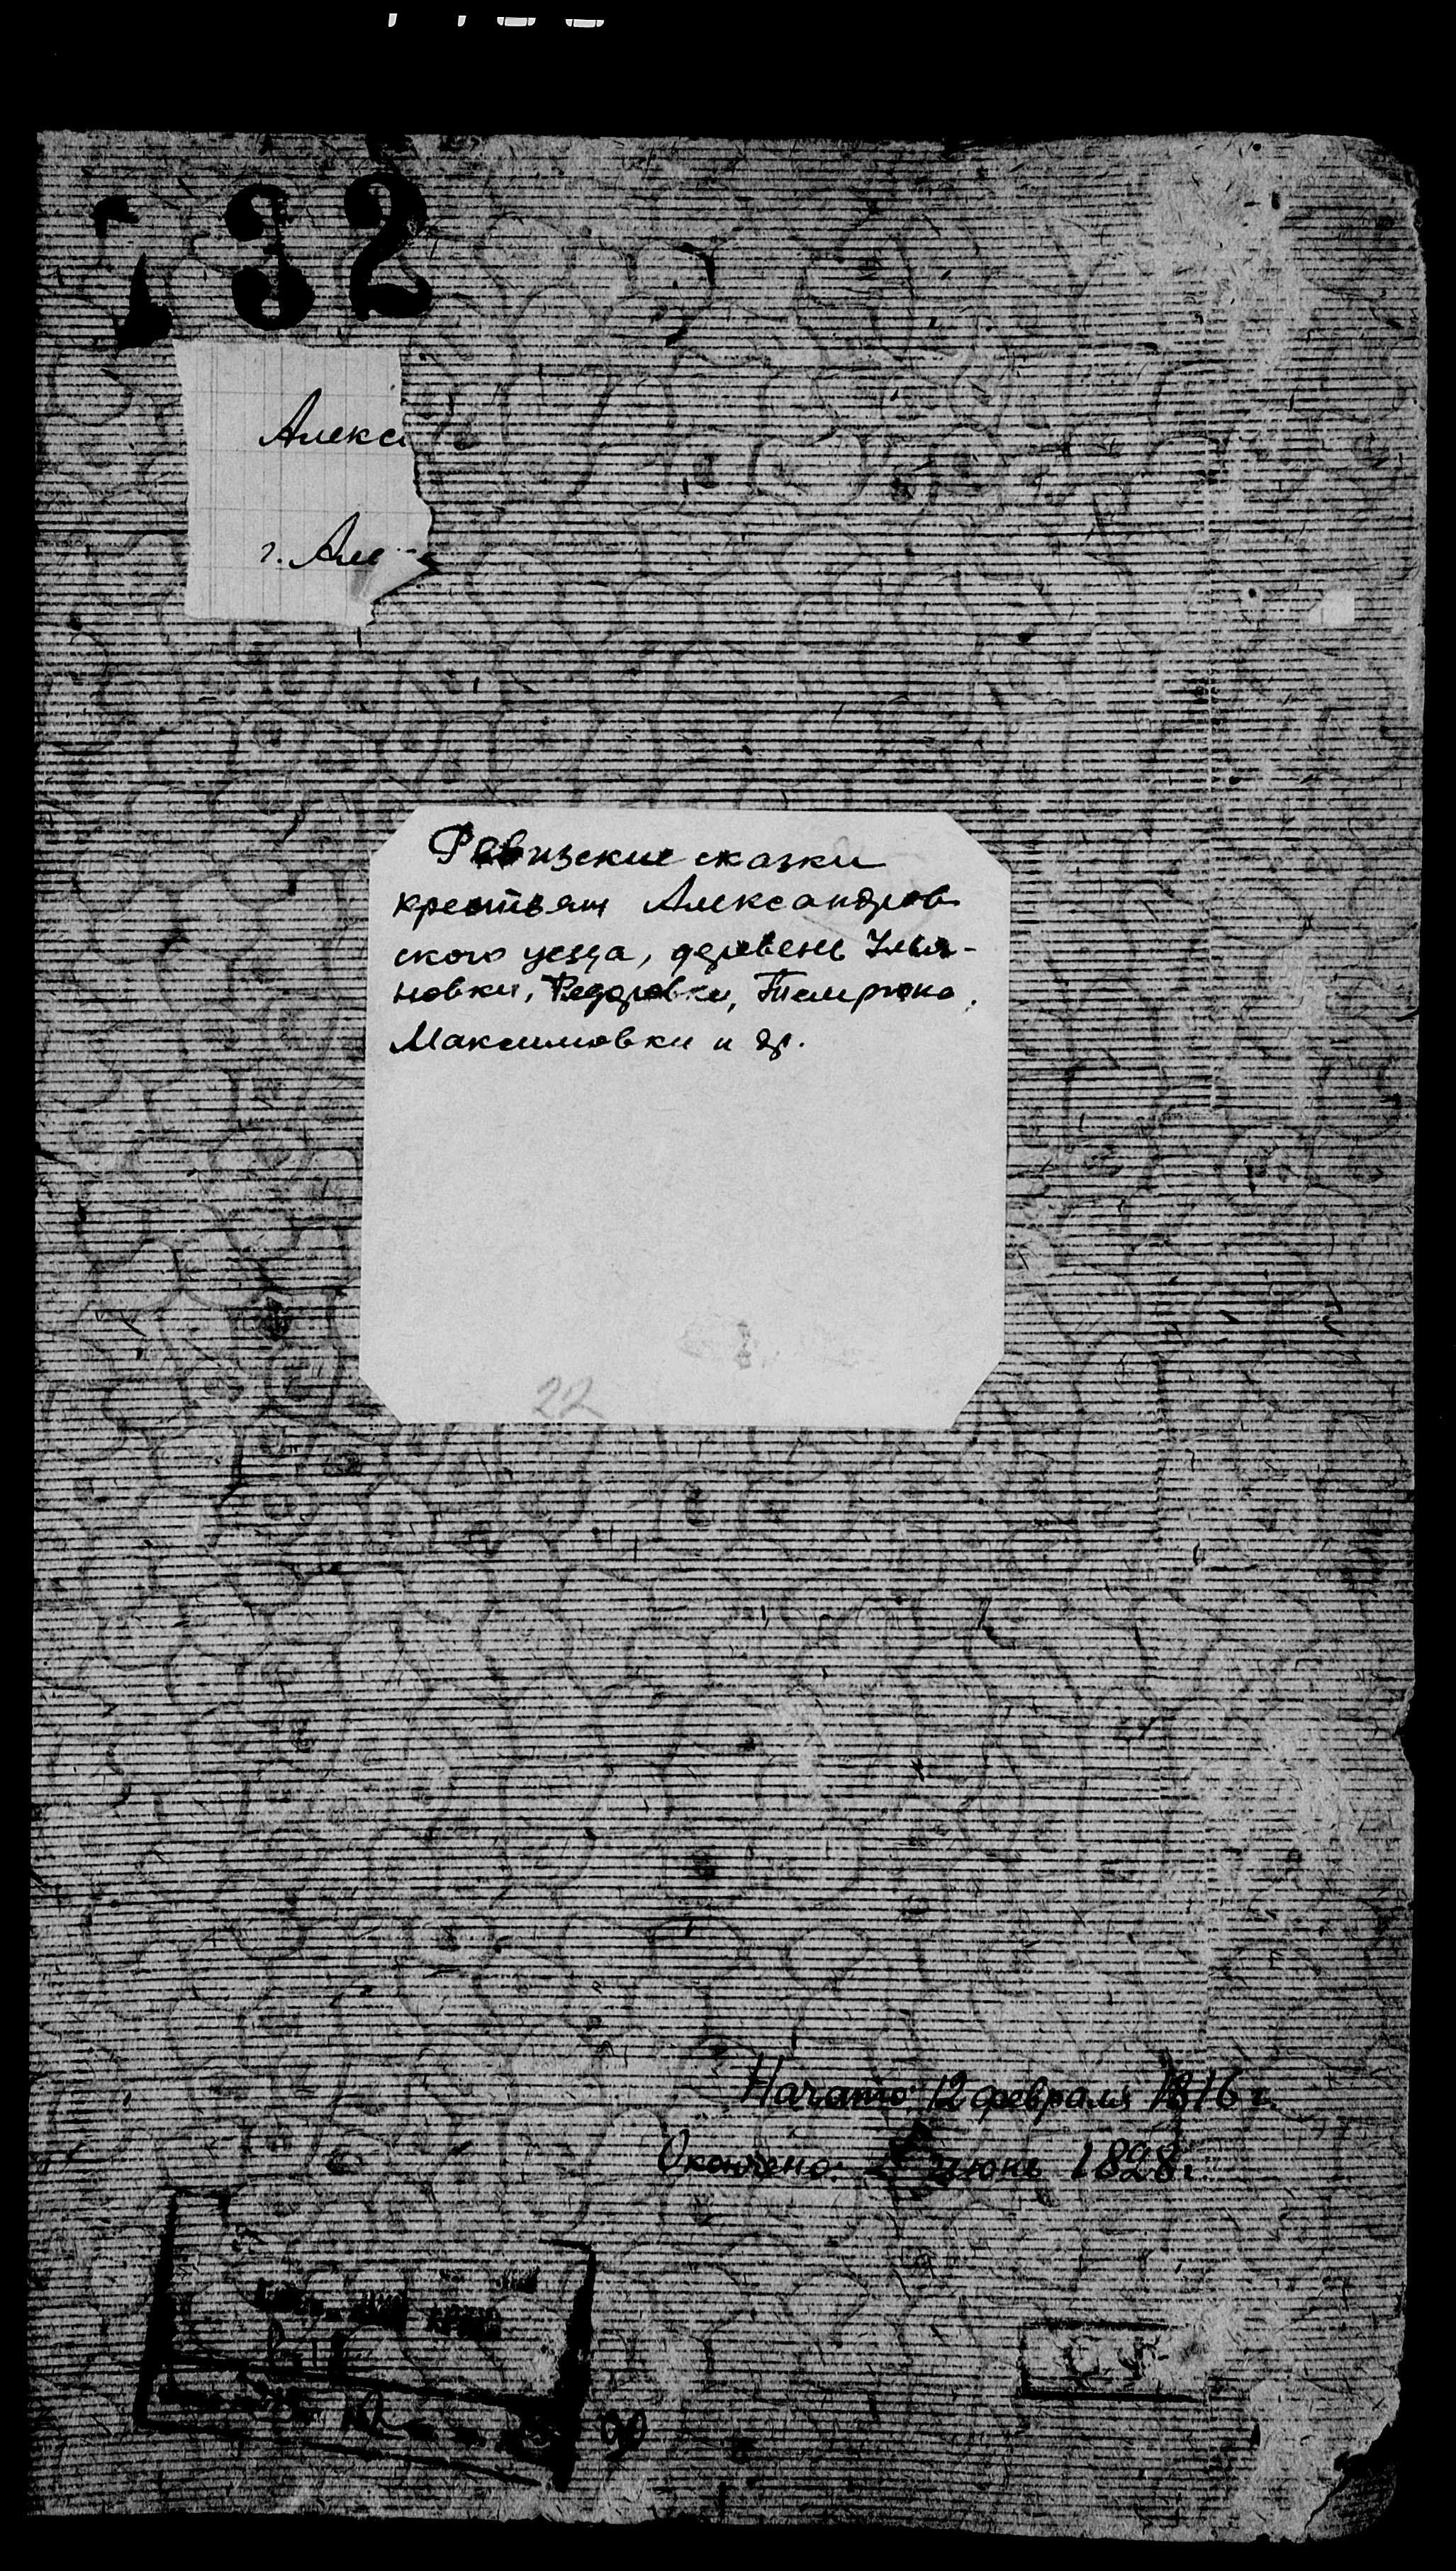 32
Алекса
г. Але
Ревизские сказки
крестьян Александров
ского уезда, деревень Улья-
новки, Федоровки, Темрюка,
Максимовки и др.
22
Начато: 12 февраля 1816 г.
Окончено: июнь 1828 г.